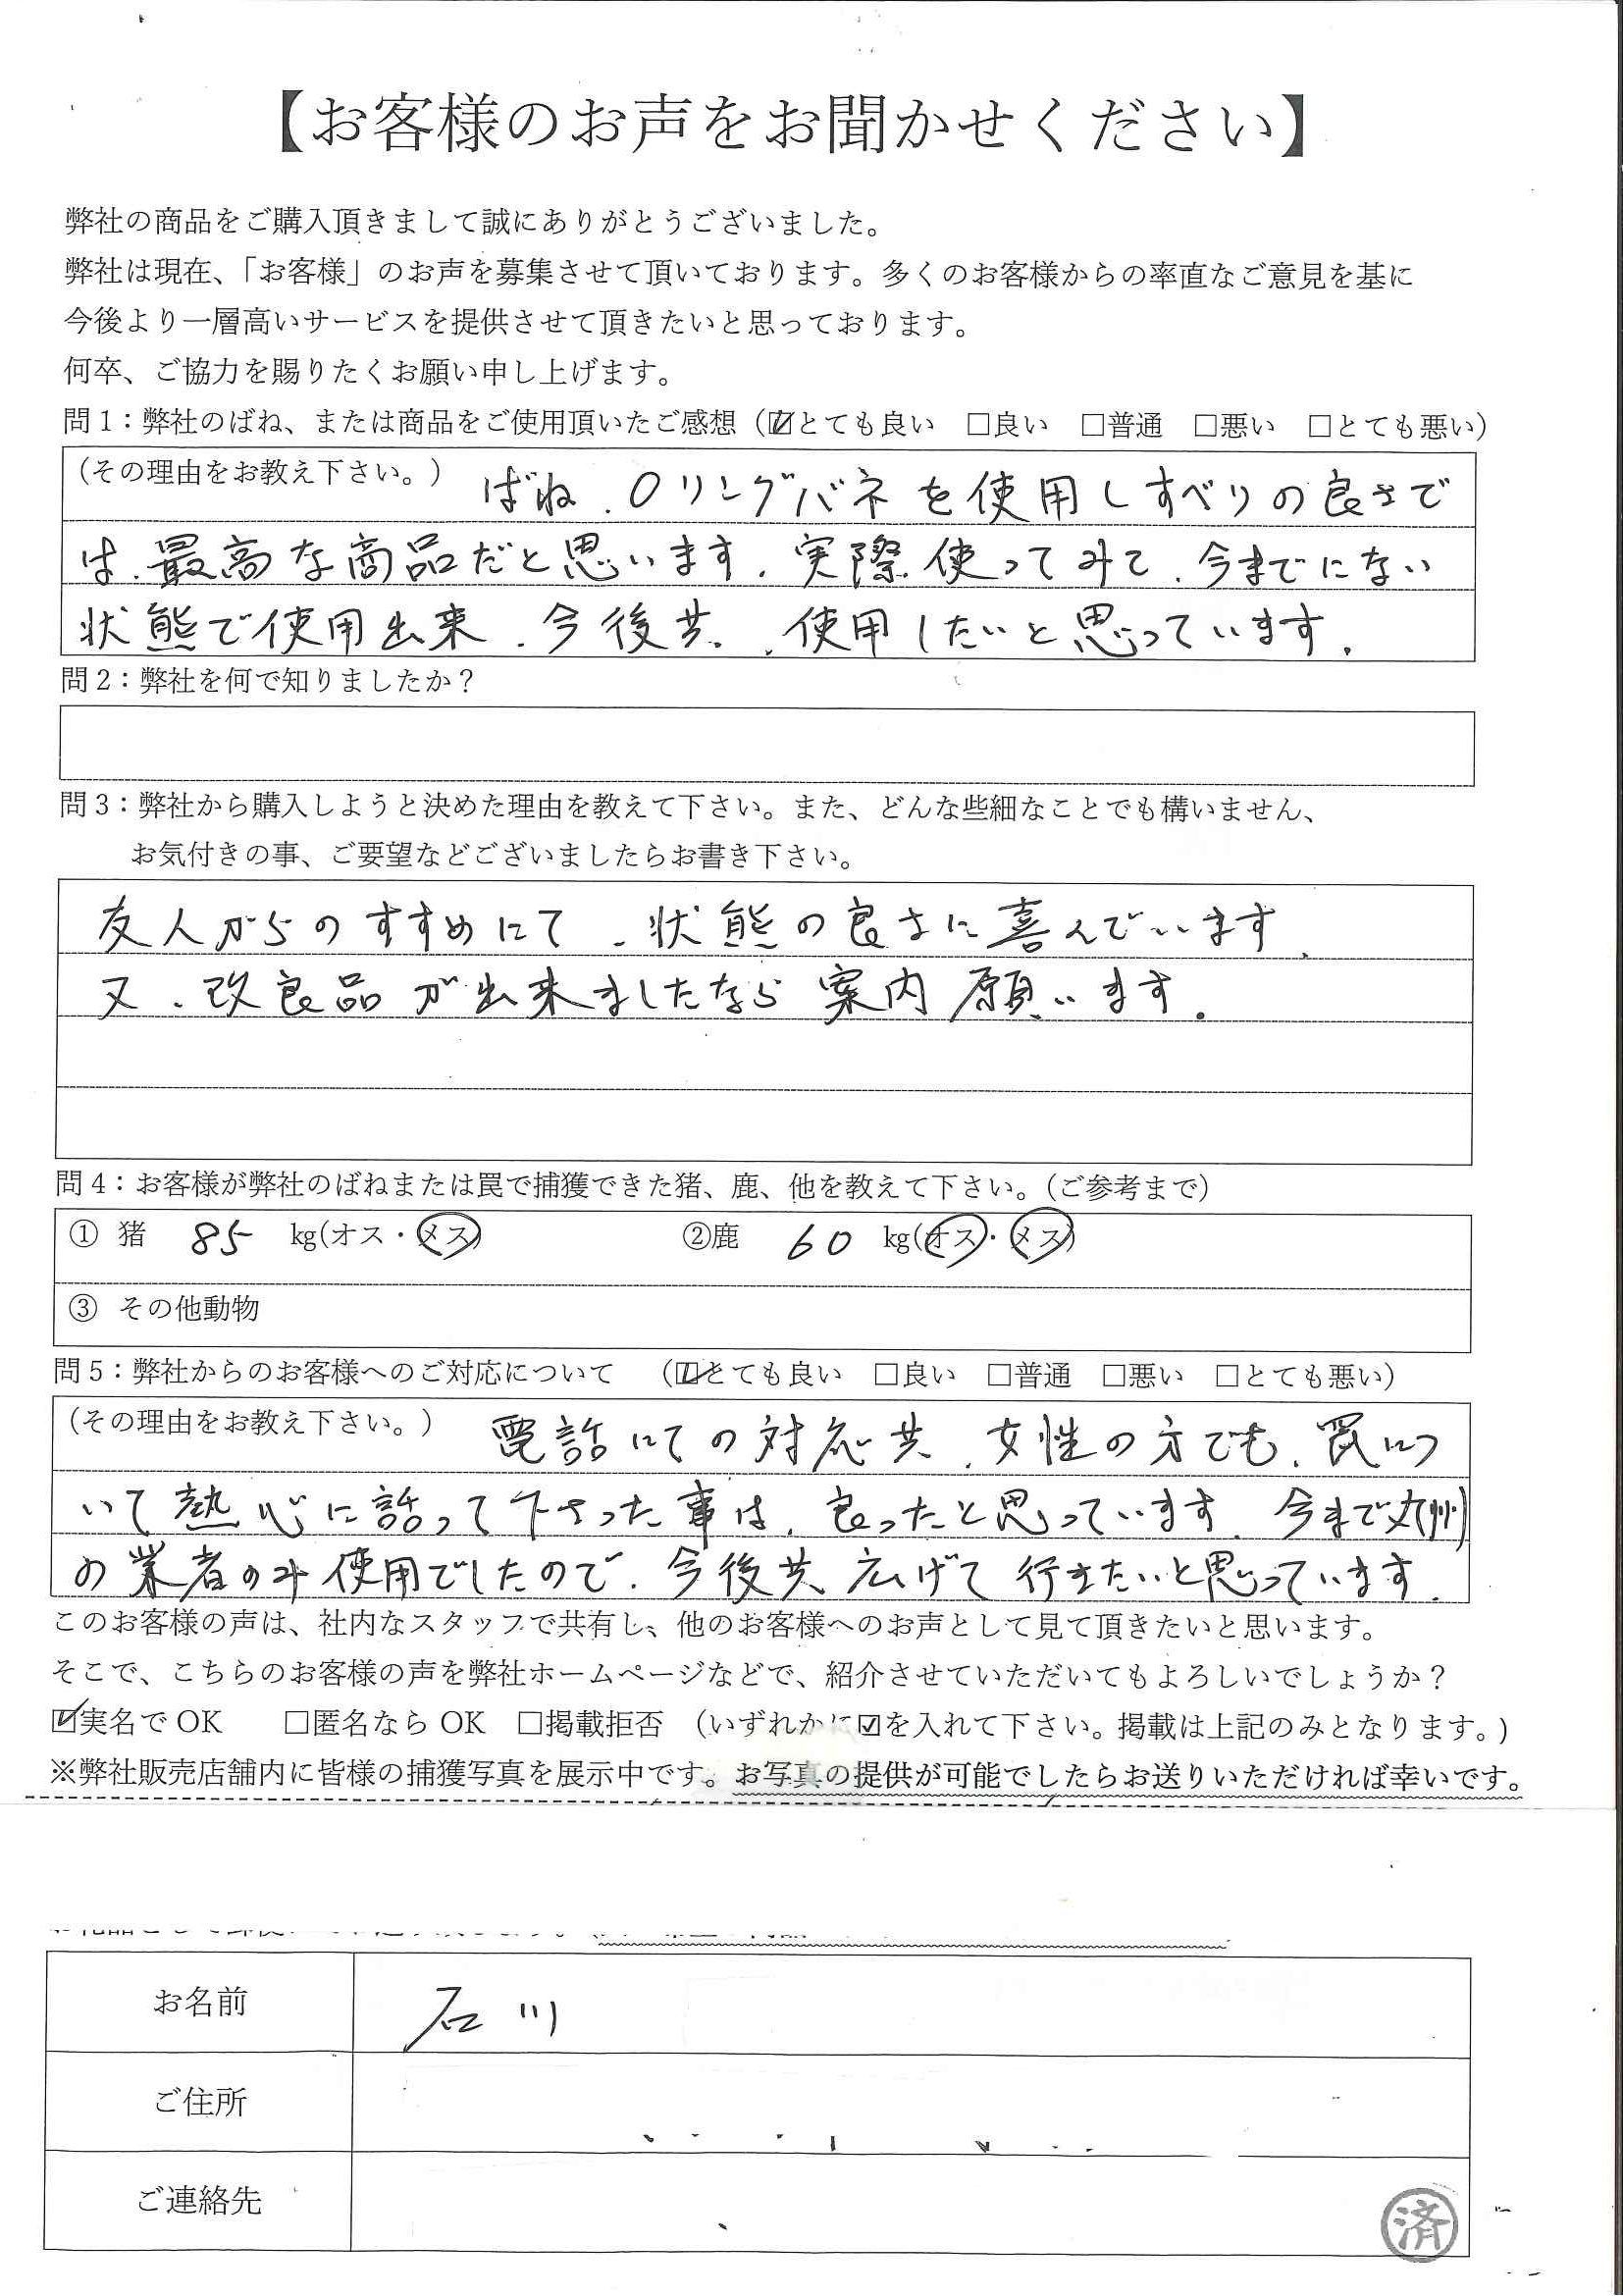 【お客様のお声をお聞かせください】
弊社の商品をご購入頂きまして誠にありがとうございました。
弊社は現在、「お客様」のお声を募集させて頂いております。多くのお客様からの率直なご意見を基に
今後より一層高いサービスを提供させて頂きたいと思っております。
何卒、ご協力を賜りたくお願い申し上げます。
問1：弊社のばね、または商品をご使用頂いたご感想（☑とても良い　□良い　□普通　□悪い　□とても悪い）
（その理由をお教え下さい。）ばね、Oリングバネを使用しすべりの良さで
は、最高な商品だと思います。実際使ってみて、今までにない
状態で使用出来、今後共、使用したいと思っています。
問2：弊社を何で知りましたか？
問3：弊社から購入しようと決めた理由を教えて下さい。また、どんな些細なことでも構いません、
お気付きの事、ご要望などございましたらお書き下さい。
友人からのすすめにて、状態の良さに喜んでいます。
又、改良品が出来ましたなら案内願います。
問4：お客様が弊社のばねまたは罠で捕獲できた猪、鹿、他を教えて下さい。（ご参考まで）
① 猪　85　kg(オス・メス)　②鹿　60　kg(オス・メス)
③ その他動物
問5：弊社からのお客様へのご対応について　（☑とても良い　□良い　□普通　□悪い　□とても悪い）
（その理由をお教え下さい。）電話にての対応共、女性の方でも、罠につ
いて熱心に話って下さった事は、良ったと思っています。今まで九州
の業者のみ使用でしたので、今後共、広げて行きたいと思っています。
このお客様の声は、社内なスタッフで共有し、他のお客様へのお声として見て頂きたいと思います。
そこで、こちらのお客様の声を弊社ホームページなどで、紹介させていただいてもよろしいでしょうか？
☑実名でOK　□匿名ならOK　□掲載拒否　（いずれかに☑を入れて下さい。掲載は上記のみとなります。）
※弊社販売店舗内に皆様の捕獲写真を展示中です。お写真の提供が可能でしたらお送りいただければ幸いです。
お名前　石川
ご住所
ご連絡先
済